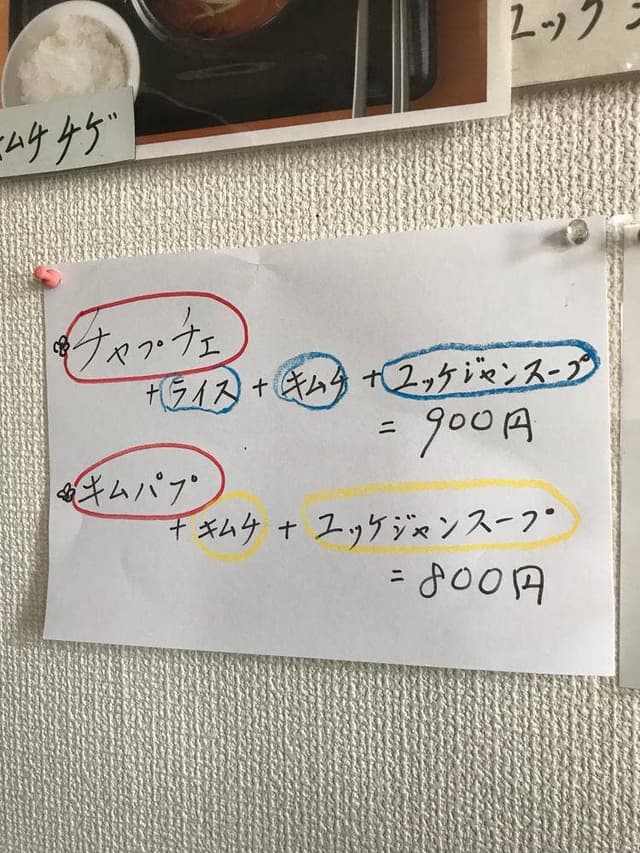 キムチチゲ
ユッケ
チャプチェ
+ライス+キムチ+ユッケジャンスープ
= 900円
キムパプ
+キムチ+ユッケジャンスープ
= 800円